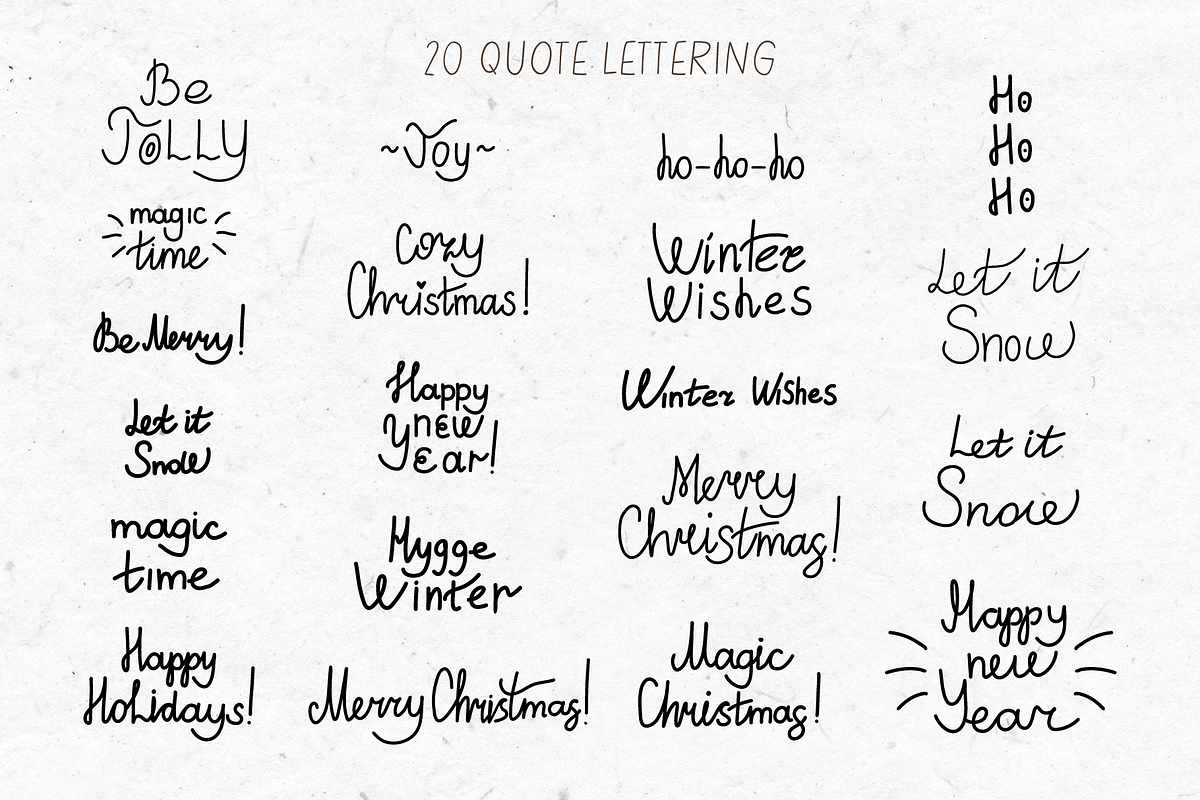 20 QUOTE LETTERING
Be
JOLLY
magic
time
Be Merry!
Let it
Snow
magic
time
Happy
Holidays!
~Joy~
Cozy
Christmas!
Happy
new
year!
Hygge
Winter
Merry Christmas!
ho-ho-ho
Winter
Wishes
Winter Wishes
Merry
Christmas!
Magic
Christmas!
Ho
Ho
Ho
Let it
Snow
Let it
Snow
Happy
new
Year